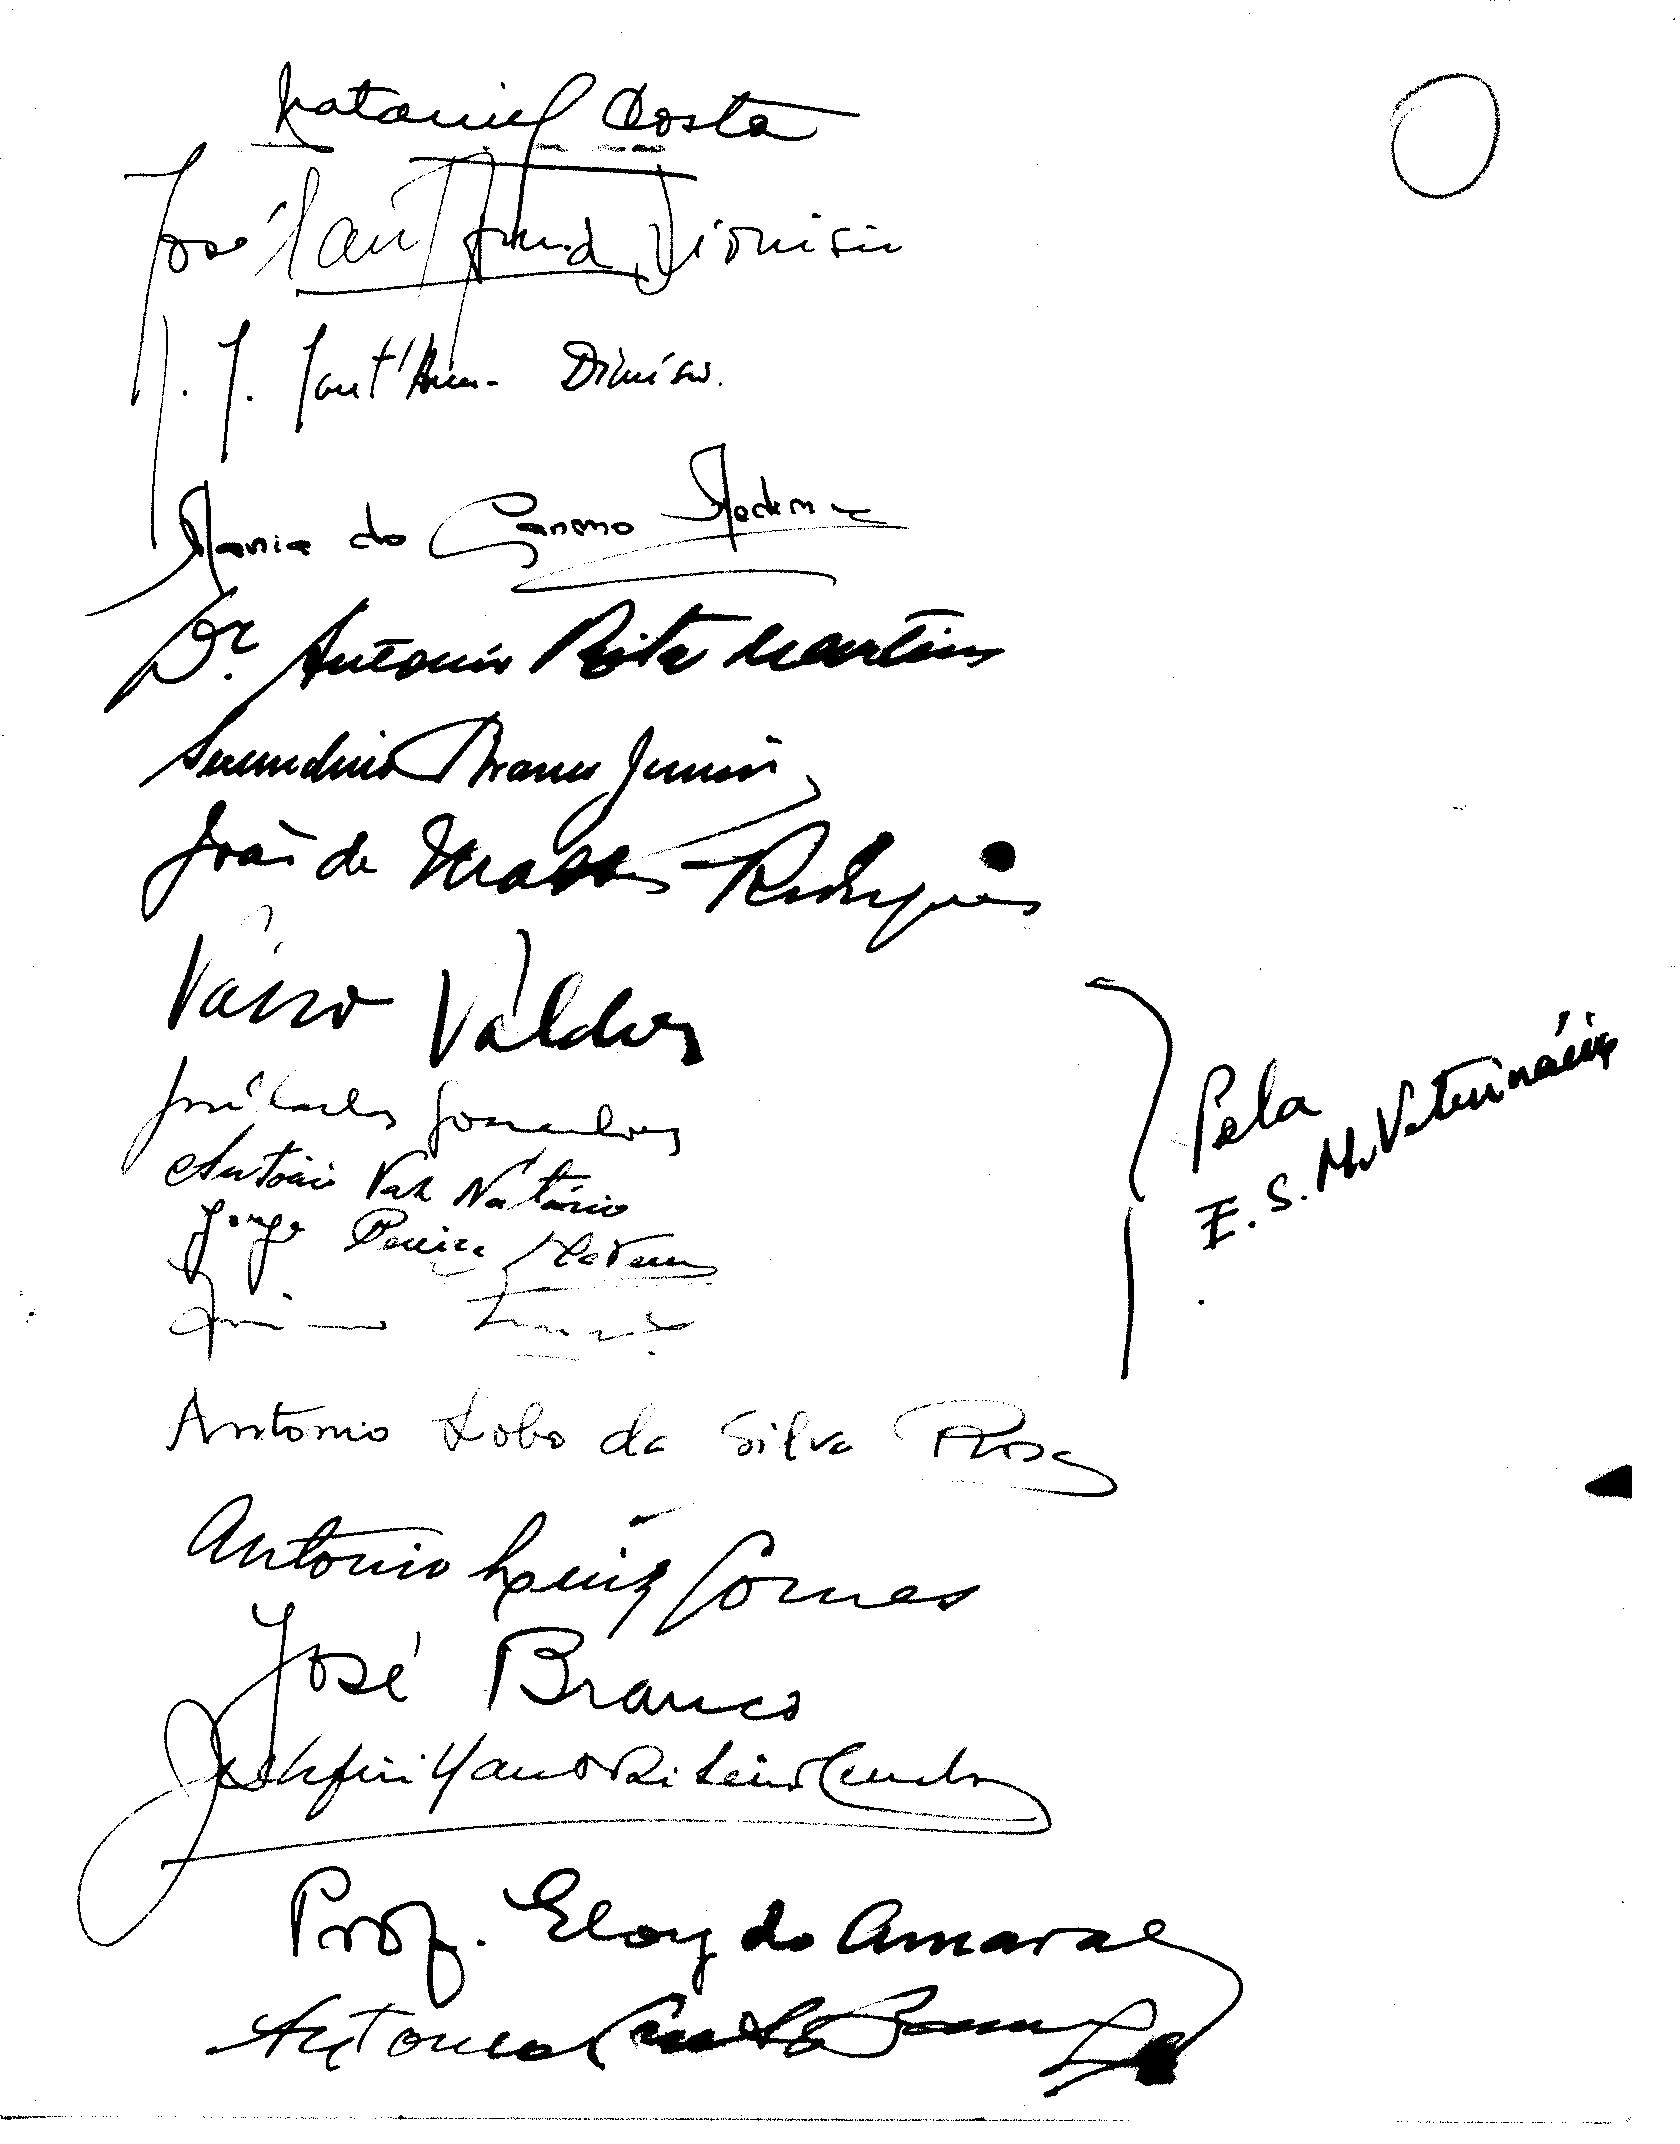 Nataniel Costa
José Sant'Anna Dionisio
J. J. Sant'Anna Dionísio.
Maria do Carmo Medina
Dr. Antonio Rita Martins
Secundino Branco Junior
João de Mattos Rodrigues
Vasco Valdez
José Carlos Gonçalves
António Vaz Natário
Jorge Pereira
Pela
E. S. M. Veterinária
Antonio Lobo da Silva Rosa
Antonio Luiz Gomes
José Branco
Ribeiro
Prof. Eloy do Amaral
Antonio